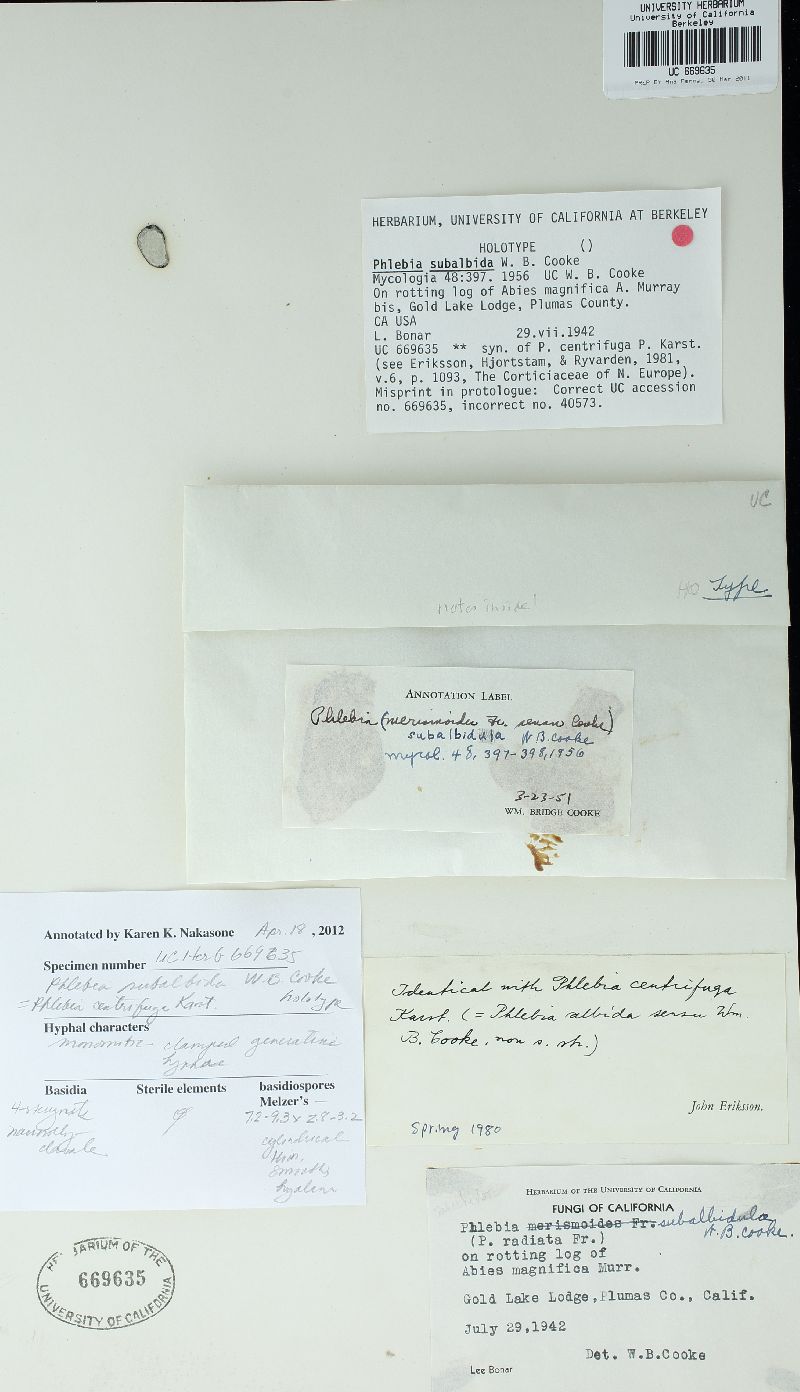 UNIVERSITY HERBARIUM
University of California
Berkeley
UC 669635
HERBARIUM, UNIVERSITY OF CALIFORNIA AT BERKELEY
HOLOTYPE ()
Phlebia subalbida W. B. Cooke
Mycologia 48:397. 1956 UC W. B. Cooke
On rotting log of Abies magnifica A. Murray
bis, Gold Lake Lodge, Plumas County.
CA USA
L. Bonar 29.vii.1942
UC 669635 ** syn. of P. centrifuga P. Karst.
(see Eriksson, Hjortstam, & Ryvarden, 1981,
v.6, p. 1093, The Corticiaceae of N. Europe).
Misprint in protologue: Correct UC accession
no. 669635, incorrect no. 40573.
UC
Holo Type
notes inside!
ANNOTATION LABEL
Phlebia (merismoides Fr. sensu Cooke)
subalbidula W B. Cooke
mycol. 48, 397-398, 1956
3-23-51
WM. BRIDGE COOKE
Annotated by Karen K. Nakasone Apr. 18, 2012
Specimen number UC Herb 669635
Phlebia subalbida W.B. Cooke
= Phlebia centrifuga Karst. holotype
Hyphal characters
monomitic - clamped generative
hyphae
Basidia Sterile elements basidiospores
Melzer's —
4-sterigmate
narrowly
clavate
7.2-9.3 x 2.8-3.2
cylindrical
thin,
smooth,
hyaline
Identical with Phlebia centrifuga
Karst. (= Phlebia albida sensu Wm.
B. Cooke, non s. str.)
John Eriksson.
Spring 1980
HERBARIUM OF THE UNIVERSITY OF CALIFORNIA
FUNGI OF CALIFORNIA
Phlebia merismoides Fr. subalbidula
W.B. Cooke.
(P. radiata Fr.)
on rotting log of
Abies magnifica Murr.
Gold Lake Lodge, Plumas Co., Calif.
July 29, 1942
Det. W.B.Cooke
Lee Bonar
HERBARIUM OF THE
669635
UNIVERSITY OF CALIFORNIA